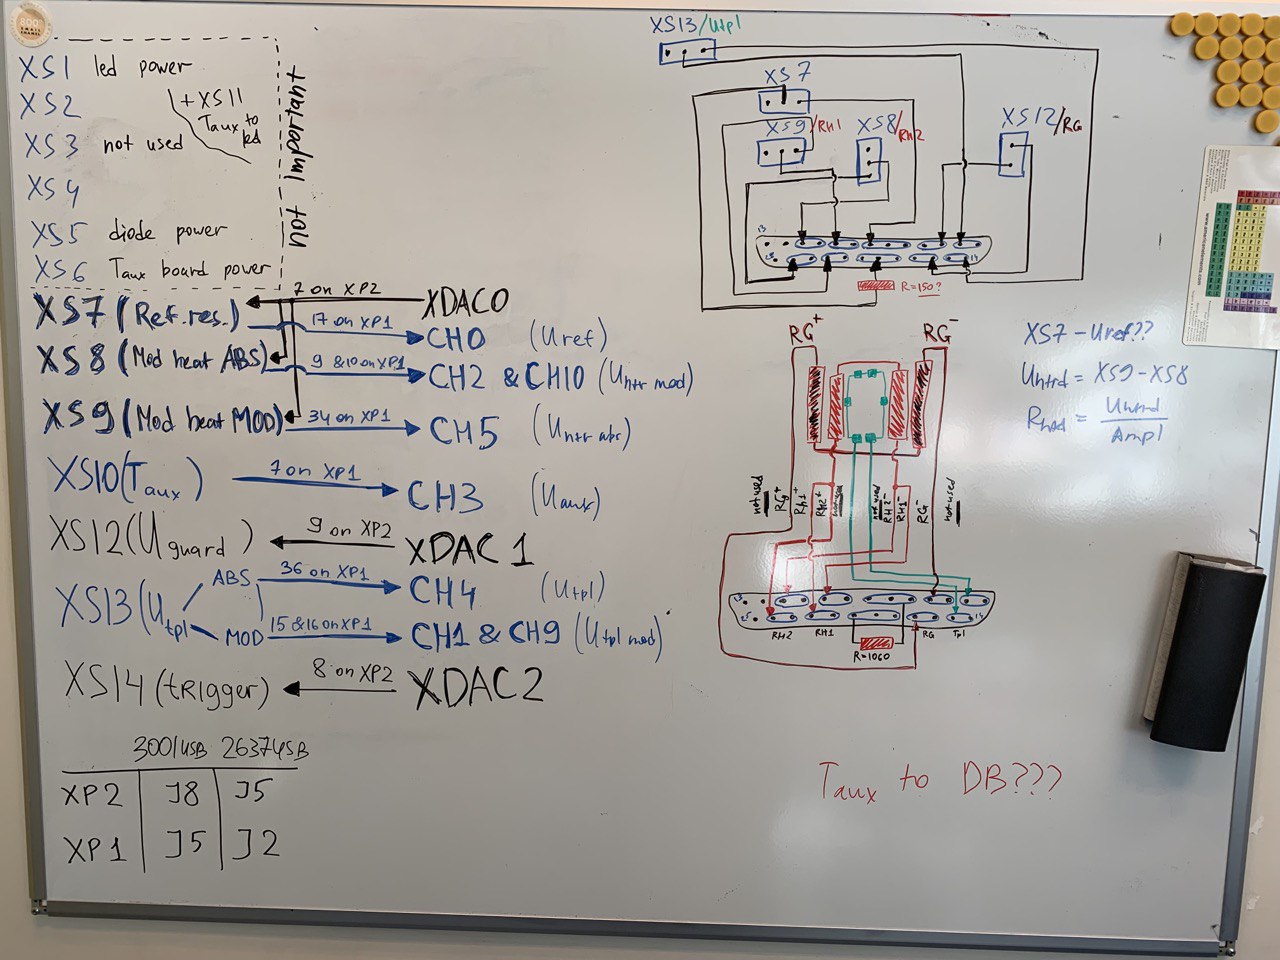 XS1 led power
XS2
+XS11
Taux to led
XS3 not used
XS4
XS5 diode power
XS6 Taux board power
not important
XS7 (Ref.res.)
7 on XP2
XDAC0
17 on XP1
CH0 (Uref)
XS8 (Mod heat ABS)
9 &10 on XP1
CH2 & CH10 (Uhtr mod)
XS9 (Mod heat MOD)
34 on XP1
CH5 (Uhtr abs)
XS10(Taux)
7 on XP1
CH3 (Uaux)
XS12(Uguard)
9 on XP2
XDAC1
XS13(Utpl
ABS
36 on XP1
CH4 (Utpl)
MOD
15 &16 on XP1
CH1 & CH9 (Utpl mod)
XS14(tRigger)
8 on XP2
XDAC2
3001USB 2637USB
XP2 J8 J5
XP1 J5 J2
XS13/Utpl
XS7
XS9/RH1
XS8/RH2
XS12/RG
13
25
14
R=150?
RG+
RG-
not used
RG+
RH1+
RH2+
not used
not used
RH2-
RH1-
RG-
not used
13
25
14
RH2
RH1
RG
Tpl
R=1060
XS7 - Uref??
Uhtrd = XS9-XS8
Rhtd = Uhtrd
Ampl
Taux to DB???